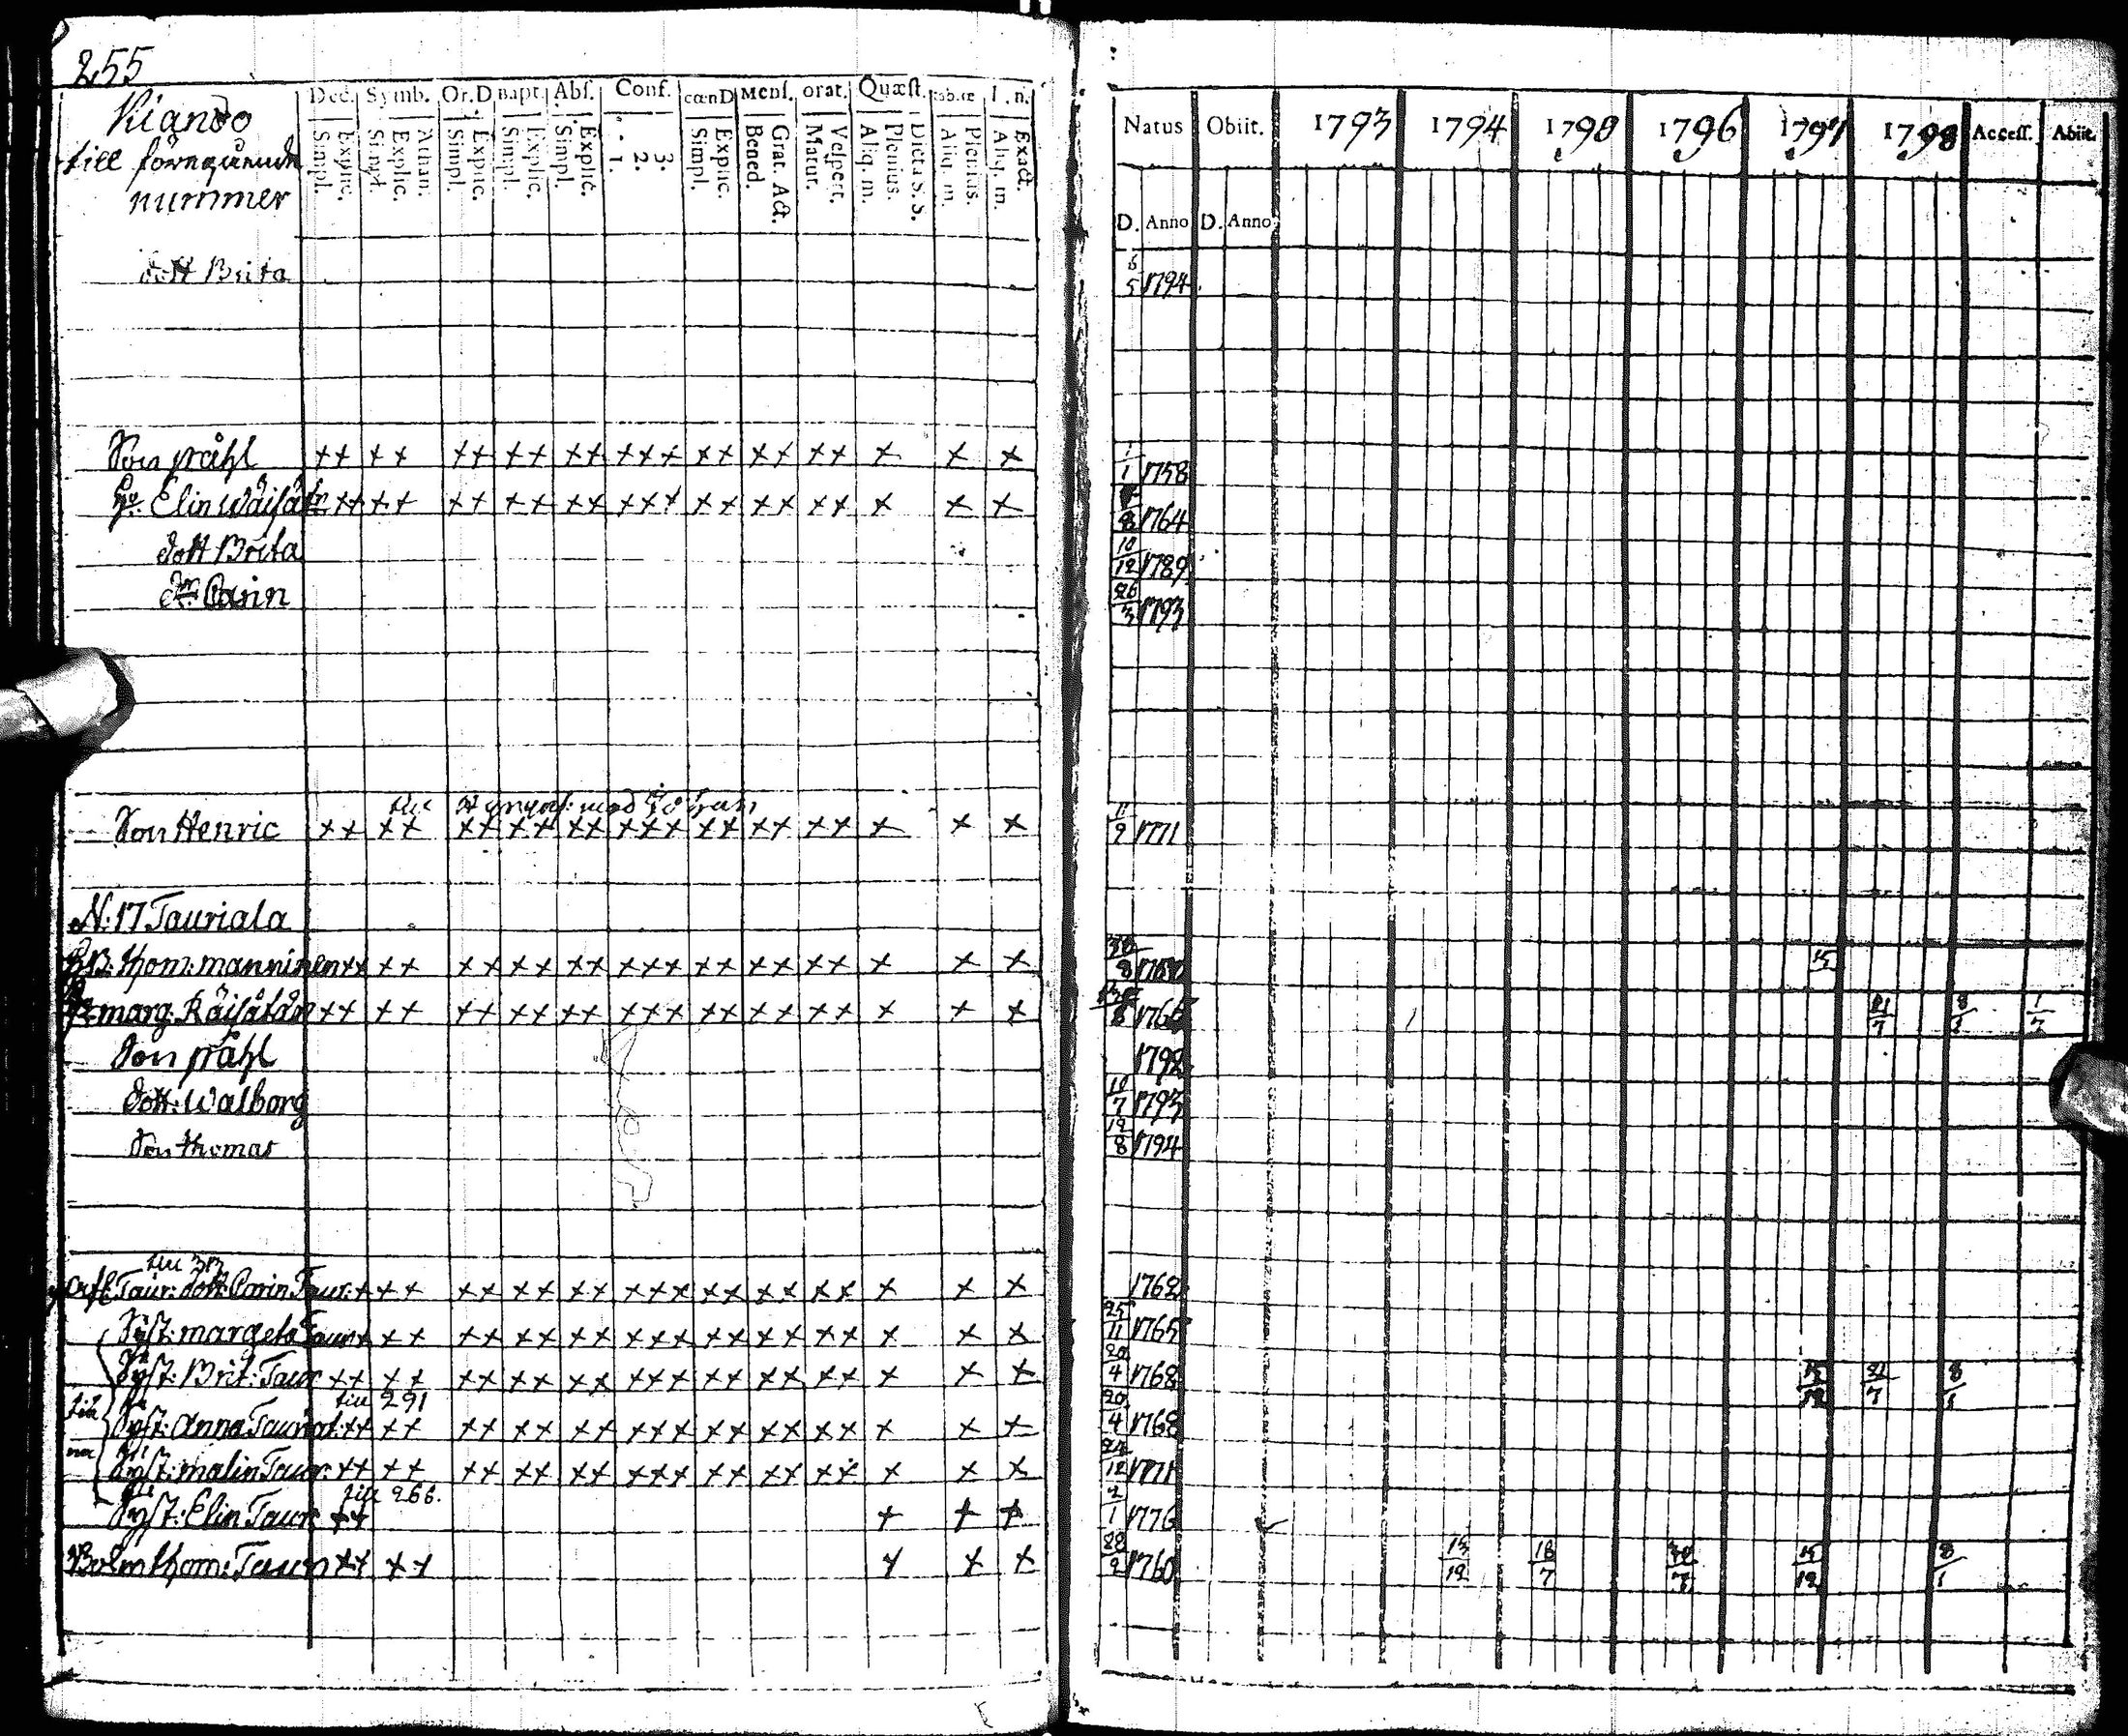 255
Kiando
till föregående
nummer
Dec. Symb. Or.D Bapt. Abs. Conf. cœnD Mens. orat. Quæst.
Simpl. Explic. Simpl. Explic. Athan. Simpl. Explic. Simpl. Explic. Simpl. Explic. 1. 2. 3. Simpl. Explic. Bened. Grat. Act. Matut. Vespert. Aliq. m. Plenius. Dicta S. S. Aliq. m. Plenius. Aliq. m. Exact.
Natus Obiit. 1793 1794 1796 1797 1798 Access. Abiit.
D. Anno D. Anno
dott Brita 6/5 1794
Son påhl ++ ++ ++ ++ ++ +++ ++ ++ ++ + + + 1/1 1758
Elin Wäisätr ++ ++ ++ ++ ++ +++ ++ ++ ++ + + + 8 1764
dott Brita 10/12 1789
Carin 26/3 1793
Son Henric ++ ++ ++ ++ ++ +++ ++ ++ ++ + + + 11/9 1771
N: 17 Tauriala
thom: manninen ++ ++ ++ ++ ++ +++ ++ ++ ++ + + + 8
marg: Räisätär ++ ++ ++ ++ ++ +++ ++ ++ ++ + + + 21/7 8/1 1/7
Son påhl 1792
dott: Walborg 10/7 1793
Son thomas 12/8 1794
Taur: dott: Carin Taur: + ++ ++ ++ ++ +++ ++ ++ ++ + + + 1762
Syst: margeta Taur + ++ ++ ++ ++ +++ ++ ++ ++ + + + 25/11 1765
Syst: Brit: Taur ++ ++ ++ ++ ++ +++ ++ ++ ++ + + + 20/4 1768 15/12 21/7 8/1
till 291
Syst: anna Tauriat: ++ ++ ++ ++ ++ +++ ++ ++ ++ + + + 20/4 1768
Syst: malin Taur: ++ ++ ++ ++ ++ +++ ++ ++ ++ + + + 24/12 1771
till 266.
Syst: Elin Taur: ++ + + + 2/1 1776
thom: Taur ++ ++ + + + 28/2 1760 15/12 18/7 30/7 15/12 8/1